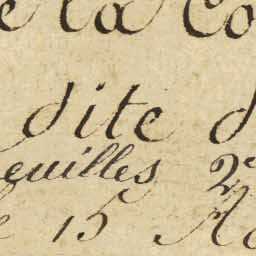 e la Co
dite d
euilles 2e
e 15 Ao